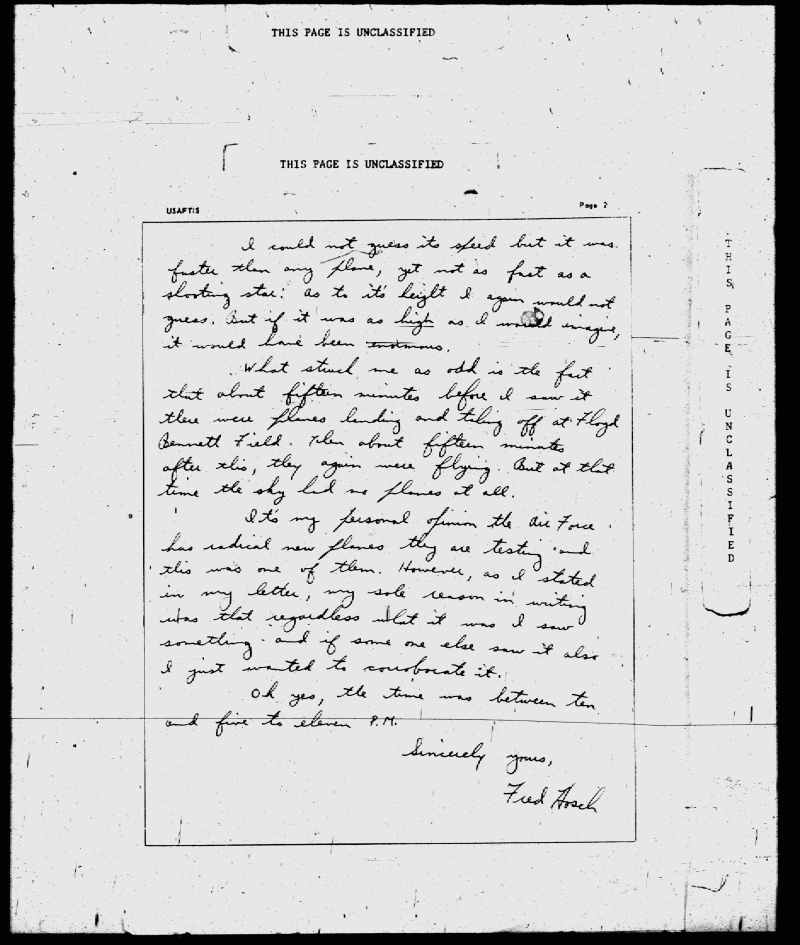 THIS PAGE IS UNCLASSIFIED
THIS PAGE IS UNCLASSIFIED
USAFTIS
Page 2
I could not guess its speed but it was
faster than any plane, yet not as fast as a
shooting star. As to it's height I again would not
guess. But if it was as high as I would imagine,
it would have been enormous.
What struck me as odd is the fact
that about fifteen minutes before I saw it
there were planes landing and taking off at Floyd
Bennett Field. Then about fifteen minutes
after this, they again were flying. But at that
time the sky had no planes at all.
It's my personal opinion the Air Force
has radical new planes they are testing and
this was one of them. However, as I stated
in my letter, my sole reason in writing
was that regardless what it was I saw
something and if some one else saw it also
I just wanted to corroborate it.
Oh yes, the time was between ten
and five to eleven P.M.
Sincerely yours,
Fred Hosch
THIS PAGE IS UNCLASSIFIED